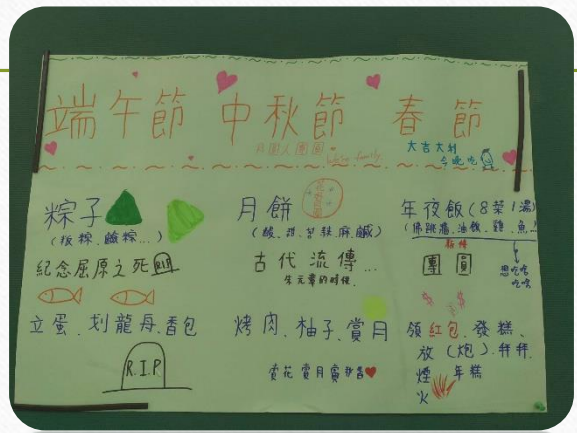 端午節 中秋節 春節
月圓人團圓
大吉大利
今晚吃
粽子
(粄粽、鹼粽...)
紀念屈原之死
立蛋、划龍舟、香包
R.I.P
月餅
(酸、甜、苦、辣、麻、鹹)
古代流傳...
朱元璋的時候
烤肉、柚子、賞月
賞花 賞月賞
年夜飯(8菜1湯)
(佛跳牆、油飯、雞、魚..)
團圓
想吃啥
吃啥
領紅包、發糕、
放(炮)、拜拜、
煙火
年糕